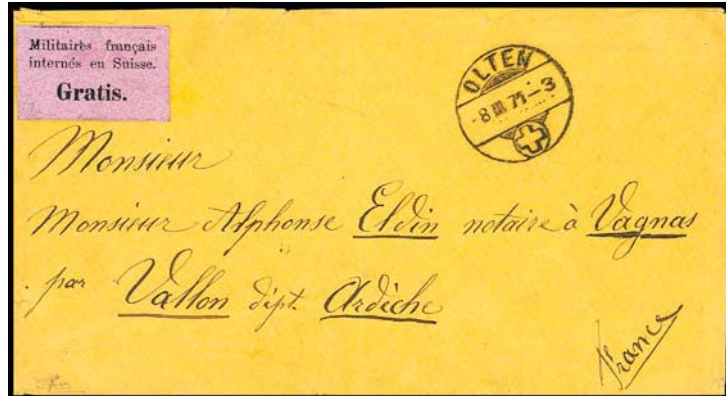 Militaires français
internés en Suisse.
Gratis.
OLTEN
-8 III 71-3
Monsieur
Monsieur Alphonse Eldin notaire à Vagnas
par Vallon dépt. Ardèche
France